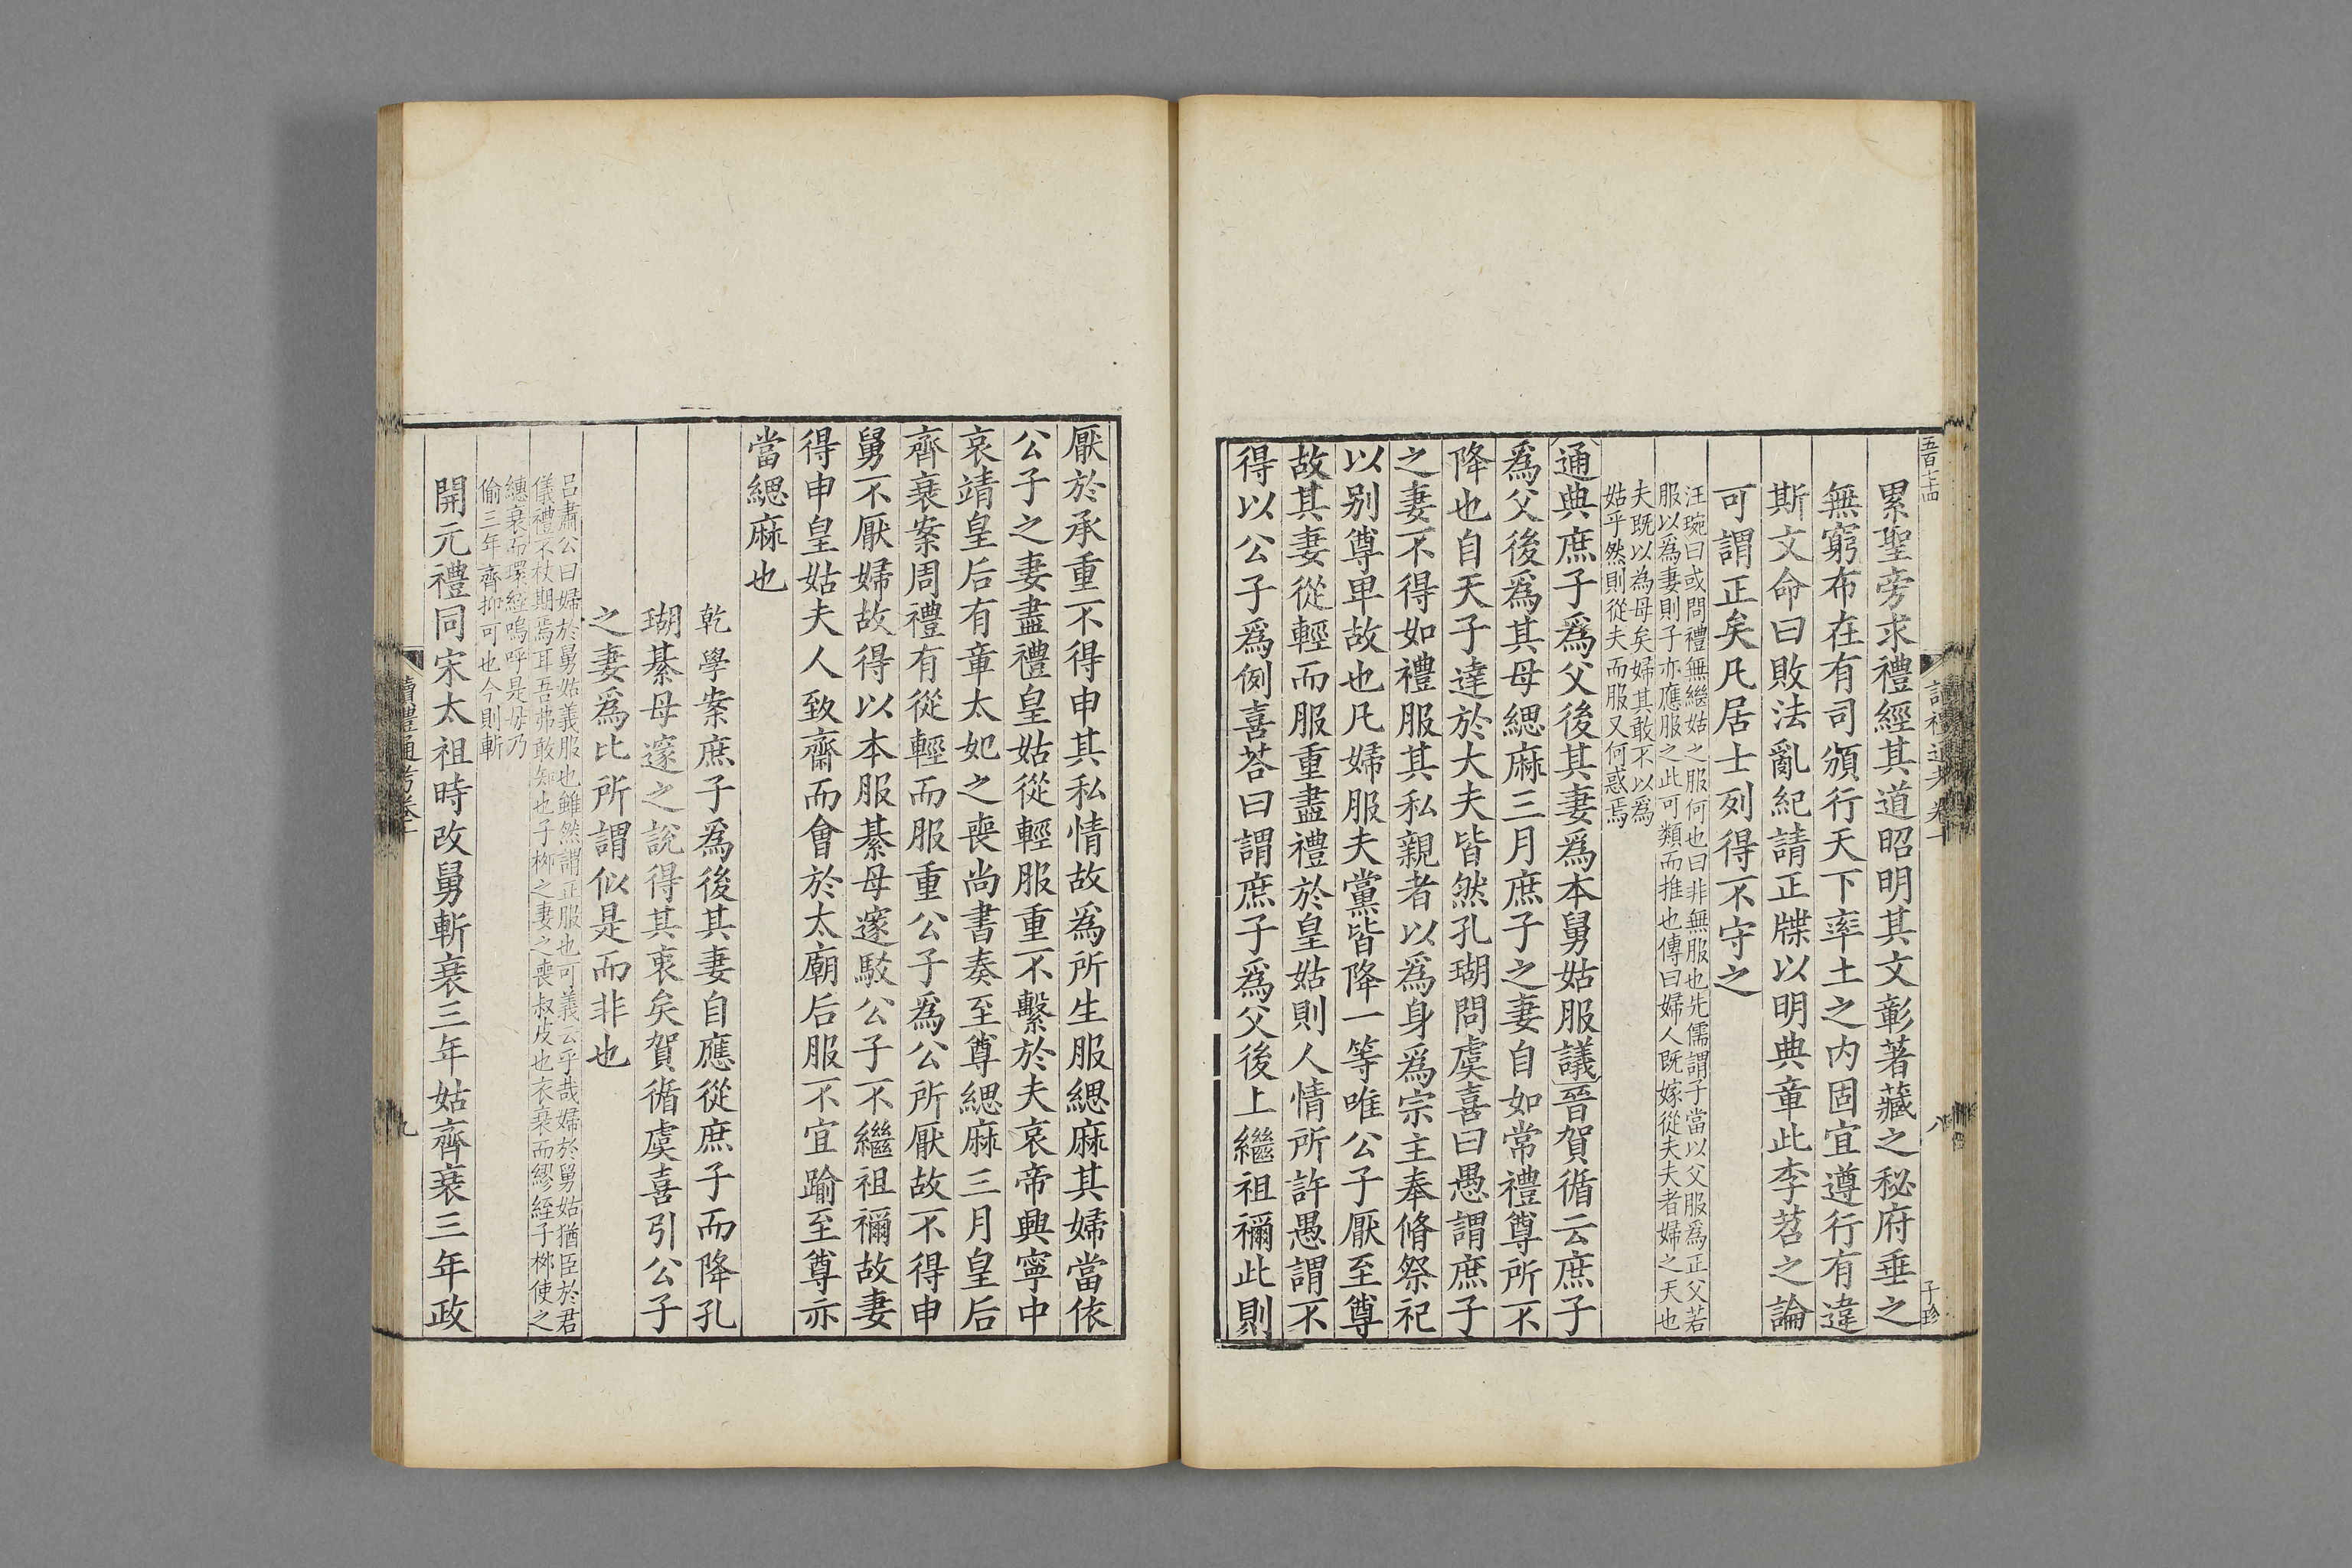 五百十四
累聖旁求禮經其道昭明其文彰著藏之秘府垂之
無窮布在有司頒行天下率土之內固宜遵行有違
斯文命曰敗法亂紀請正牒以明典章此李苕之論
可謂正矣凡居士列得不守之
汪琬曰或問禮無繼姑之服何也曰非無服也先儒謂子當以父服為正父若
服以為妻則子亦應服之此可類而推也傳曰婦人既嫁從夫夫者婦之天也
夫既以為母矣婦其敢不以為
姑乎然則從夫而服又何惑焉
通典庶子爲父後其妻爲本舅姑服議晉賀循云庶子
爲父後爲其母緦麻三月庶子之妻自如常禮尊所不
降也自天子達於大夫皆然孔瑚問虞喜曰愚謂庶子
之妻不得如禮服其私親者以爲身爲宗主奉脩祭祀
以别尊卑故也凡婦服夫黨皆降一等唯公子厭至尊
故其妻從輕而服重盡禮於皇姑則人情所許愚謂不
得以公子爲例喜荅曰謂庶子爲父後上繼祖禰此則
八
子珍
厭於承重不得申其私情故爲所生服緦麻其婦當依
公子之妻盡禮皇姑從輕服重不繫於夫哀帝興寧中
哀靖皇后有章太妃之喪尚書奏至尊緦麻三月皇后
齊衰案周禮有從輕而服重公子爲公所厭故不得申
舅不厭婦故得以本服綦母邃駁公子不繼祖禰故妻
得申皇姑夫人致齋而會於太廟后服不宜踰至尊亦
當緦麻也
乾學案庶子爲後其妻自應從庶子而降孔
瑚綦母邃之說得其衷矣賀循虞喜引公子
之妻爲比所謂似是而非也
呂肅公曰婦於舅姑義服也雖然謂正服也可義云乎哉婦於舅姑猶臣於君
儀禮不杖期焉耳吾弗敢知也子栁之妻之喪叔皮也衣衰而繆絰子栁使之
繐衰而環絰嗚呼是毋乃
偷三年齊抑可也今則斬
開元禮同宋太祖時改舅斬衰三年姑齊衰三年政
讀禮通考卷十
九